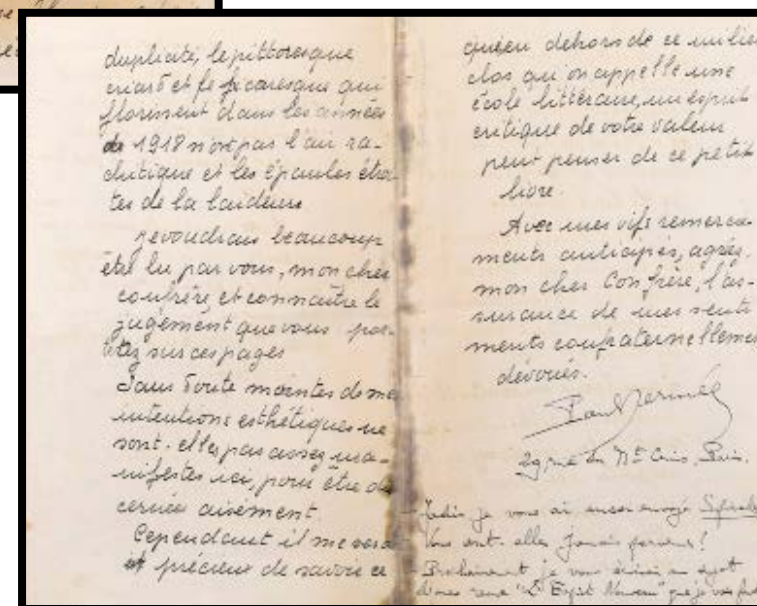 duplicité, le pittoresque
criard et le picaresque qui
florissent dans les années
de 1918 n'ont pas l'air ra-
chitique et les épaules étroi-
tes de la laideur
Je voudrais beaucoup
être lu par vous, mon cher
confrère et connaître le
jugement que vous por-
tez sur ces pages
Sans doute maintes de mes
intentions esthétiques ne
sont-elles pas assez ma-
nifestes ici, pour être dis
cernées aisément
Cependant il me serait
précieux de savoir ce
qu'en dehors de ce milieu
clos qu'on appelle une
école littéraire, un esprit
critique de votre valeur
peut penser de ce petit
livre.
Avec mes vifs remercie-
ments anticipés, agréez,
mon cher Confrère, l'as-
surance de mes senti
ments confraternellement
dévoués.
Paul Dermée
29 rue du Mt Cenis, Paris.
Jadis je vous ai envoyé Spirales
Vous sont-elles jamais parvenues!
Prochainement je vous écrirai au sujet
d'une revue "L'Esprit Nouveau" que je vais